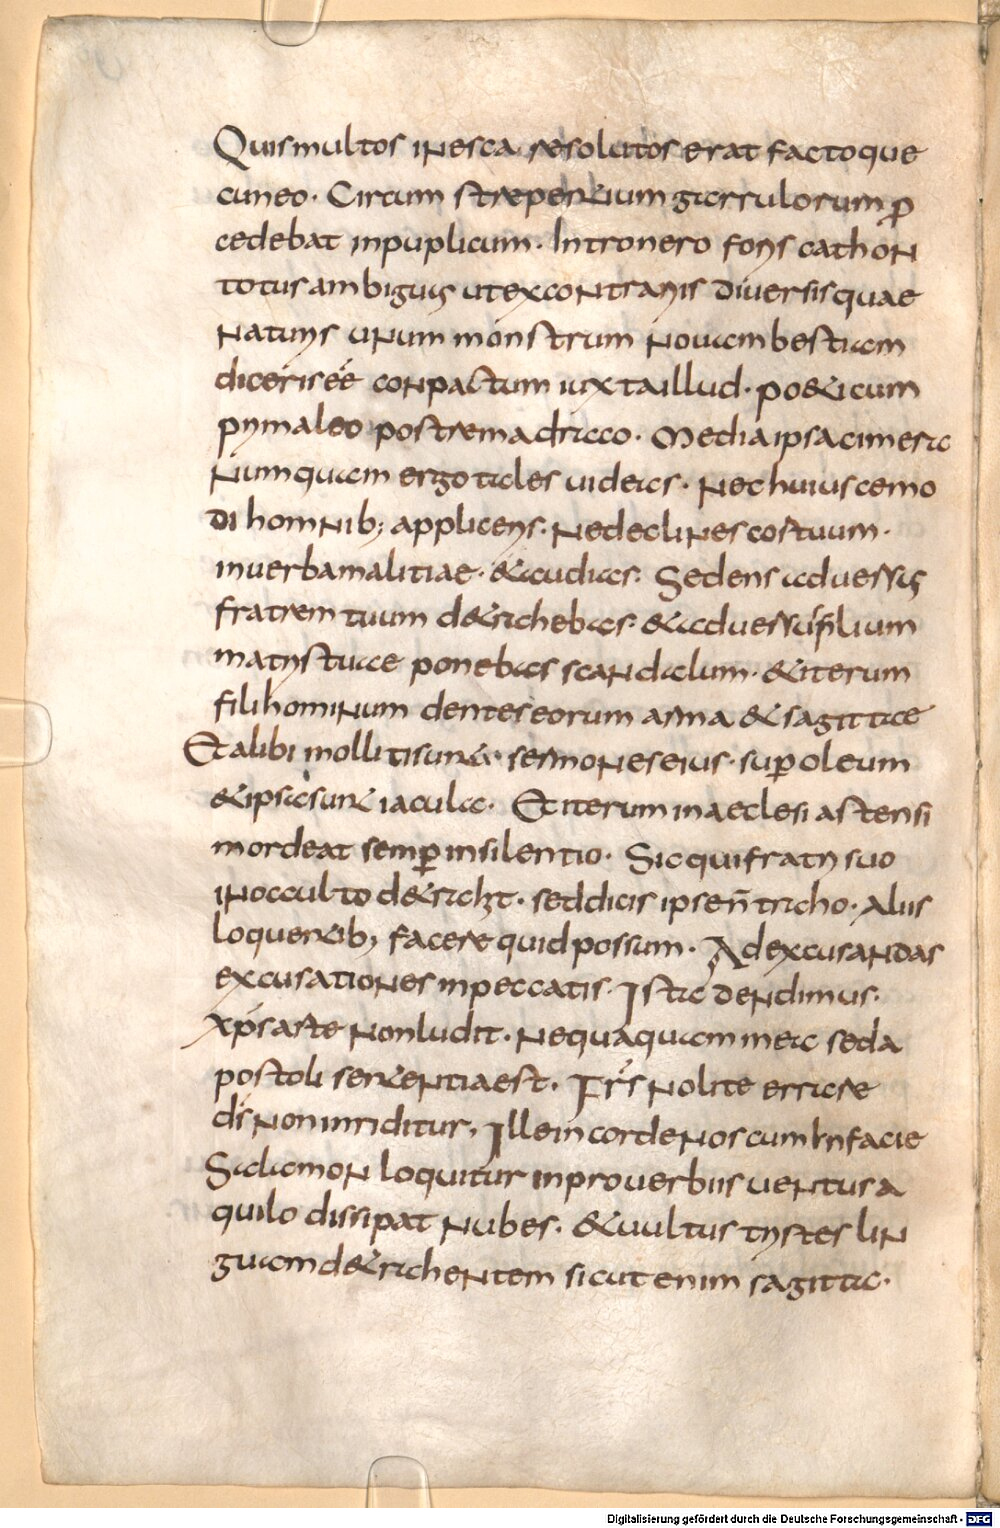 Quismultos inesca resolutos erat factoque
cuneo. Circum strepentium garrulorum p̄
cedebat inpuplicum. Intronero foris cathon
totus ambiguis utexcontrariis diversisquae
naturis unum monstrum novam bestiam
diceris éé conpactum iuxtaillud. po&icum
prima leo postrema draco. Media ipsa cimera
Numquam ergo tales videas. Nec huiuscemo
di hominib; applicens. Nedeclines cortuum.
inverbamalitiae. &audias. Sedens aduersis
fratrem tuum d&rahebas. &aduersus filium
matris tuae ponebas scandalum. &iterum
filihominum dentes eorum arma & sagittae
Et alibi molliti sunt. sermones eius. sup̄ oleum
&ipsi sunt iacula. Et iterum in aeclesiastensi
mordeat semp̄ insilentio. Sic qui fratri suo
inocculto d&raht. sed dicis ipse n̄ traho. Aliis
loquentib; facere quid possum. Ad excusandas
excusationes inpeccatis. Ista dendimus.
xp̄s arte nonludit. nequaquam mea seda
postoli sententiaest. Fr̄s nolite errare
dī non inriditur, Ille in corde nos cum In facie
Salamon loquitur inproverbiis ventus a
quilo dissipat nubes. &vultus tristes lin
guam d&rahentem sicut enim sagitta.
Digitalisierung gefördert durch die Deutsche Forschungsgemeinschaft - DFG